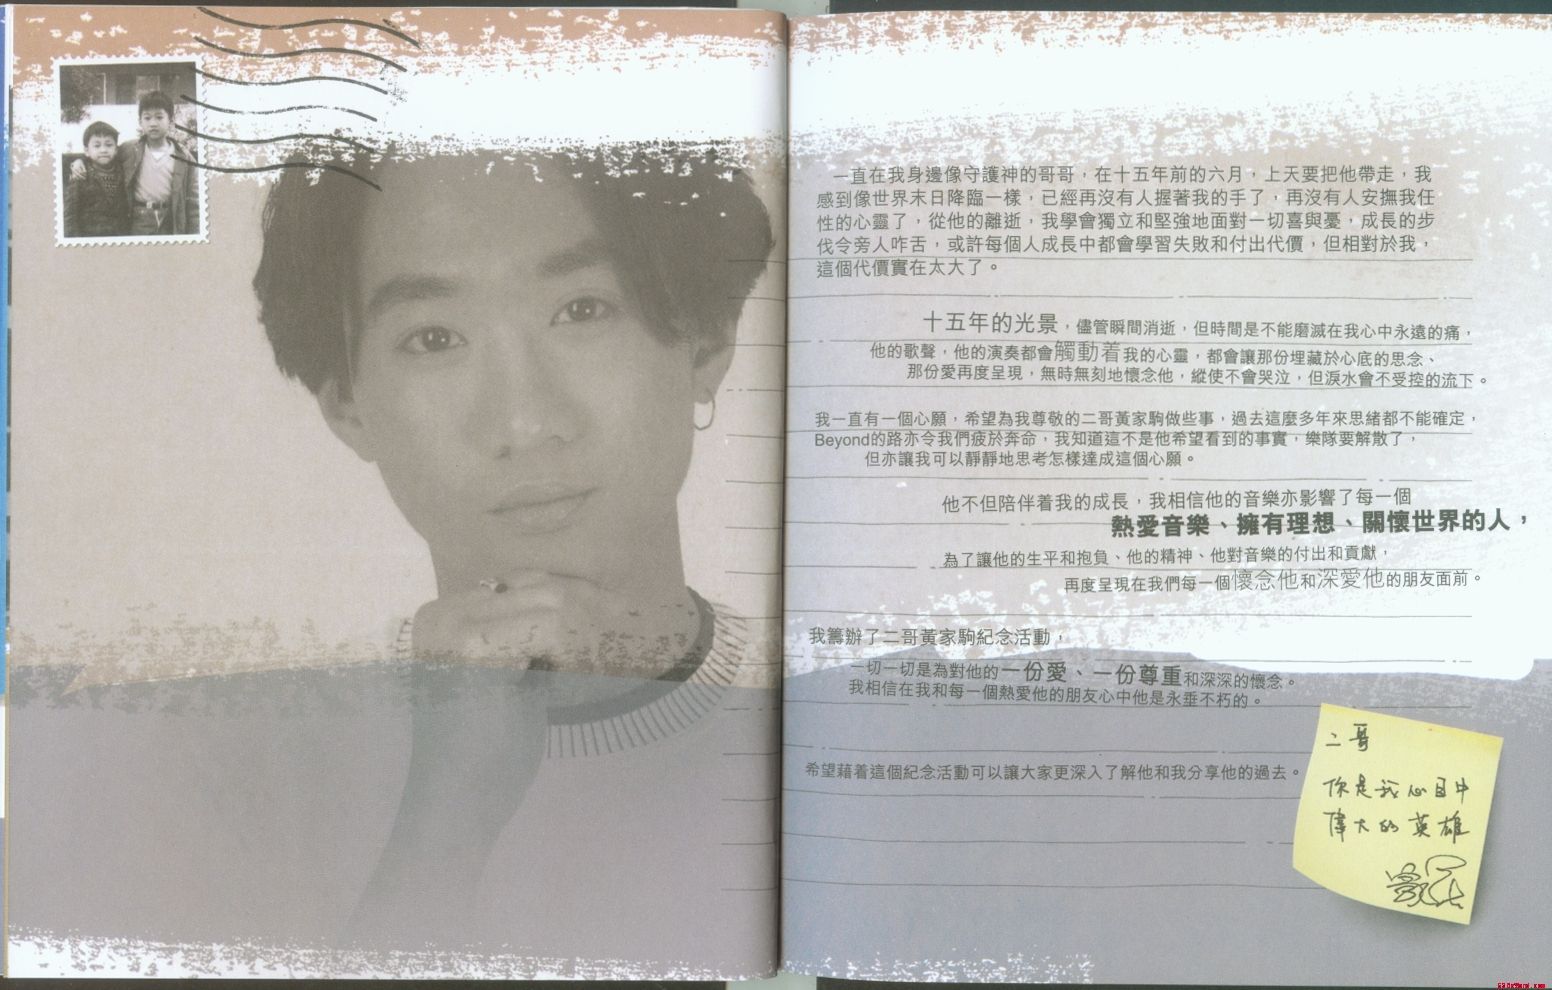 一直在我身邊像守護神的哥哥，在十五年前的六月，上天要把他帶走，我
感到像世界末日降臨一樣，已經再沒有人握著我的手了，再沒有人安撫我任
性的心靈了，從他的離逝，我學會獨立和堅強地面對一切喜與憂，成長的步
伐令旁人咋舌，或許每個人成長中都會學習失敗和付出代價，但相對於我，
這個代價實在太大了。
十五年的光景，儘管瞬間消逝，但時間是不能磨滅在我心中永遠的痛，
他的歌聲，他的演奏都會觸動着我的心靈，都會讓那份埋藏於心底的思念、
那份愛再度呈現，無時無刻地懷念他，縱使不會哭泣，但淚水會不受控的流下。
我一直有一個心願，希望為我尊敬的二哥黃家駒做些事，過去這麼多年來思緒都不能確定，
Beyond的路亦令我們疲於奔命，我知道這不是他希望看到的事實，樂隊要解散了，
但亦讓我可以靜靜地思考怎樣達成這個心願。
他不但陪伴着我的成長，我相信他的音樂亦影響了每一個
熱愛音樂、擁有理想、關懷世界的人，
為了讓他的生平和抱負、他的精神、他對音樂的付出和貢獻，
再度呈現在我們每一個懷念他和深愛他的朋友面前。
我籌辦了二哥黃家駒紀念活動，
一切一切是為對他的一份愛、一份尊重和深深的懷念。
我相信在我和每一個熱愛他的朋友心中他是永垂不朽的。
希望藉着這個紀念活動可以讓大家更深入了解他和我分享他的過去。
二哥
你是我心目中
偉大的英雄